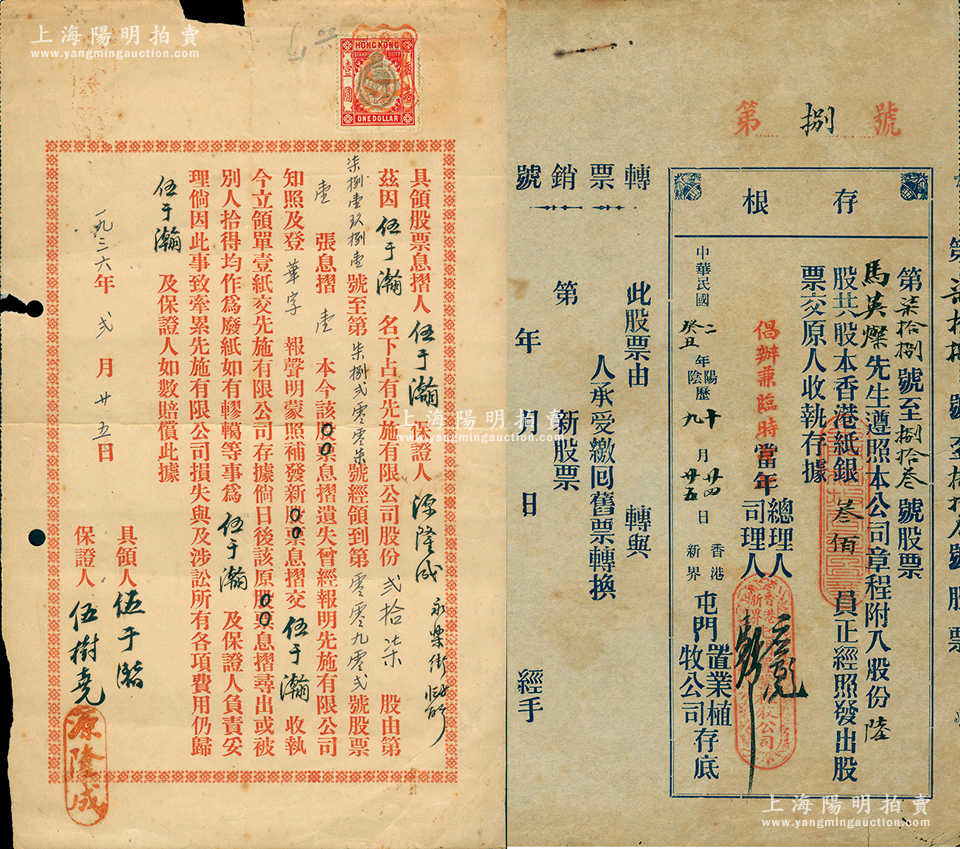 上海陽明拍賣
www.yangmingauction.com
HONG KONG
STAMP DUTY
壹圓
ONE DOLLAR
具領股票息摺人伍于瀚保證人源隆成永樂街
茲因伍于瀚名下占有先施有限公司股份貳拾柒股由第
柒捌壹玖捌壹號至第柒捌貳零零柒號經領到第零零九零貳號股票
壹張息摺壹本今該股票息摺遺失曾經報明先施有限公司
知照及登華字報聲明蒙照補發新股票息摺交伍于瀚收執
今立領單壹紙交先施有限公司存據倘日後該原股票息摺尋出或被
別人拾得均作爲廢紙如有轇轕等事爲伍于瀚及保證人負責妥
理倘因此事致牽累先施有限公司損失與及涉訟所有各項費用仍歸
伍于瀚及保證人如數賠償此據
一九三六年貳月廿五日
具領人伍于瀚
保證人伍樹堯
源隆成
上海陽明拍賣
www.yangmingauction.com
第捌號
存根
第柒拾捌號至捌拾叁號股票
馬英燦先生遵照本公司章程附入股份陸
股共股本香港紙銀叁佰員正經照發出股
票交原人收執存據
倡辦兼臨時當年總理人司理人
中華民國二年陽歷十月廿四日
癸丑陰歷九月廿五日
香港新界屯門置業植牧公司存底
轉票銷號
此股票由轉與
人承受繳回舊票轉換
第新股票
年月日經手
上海陽明拍賣
www.yangmingauction.com